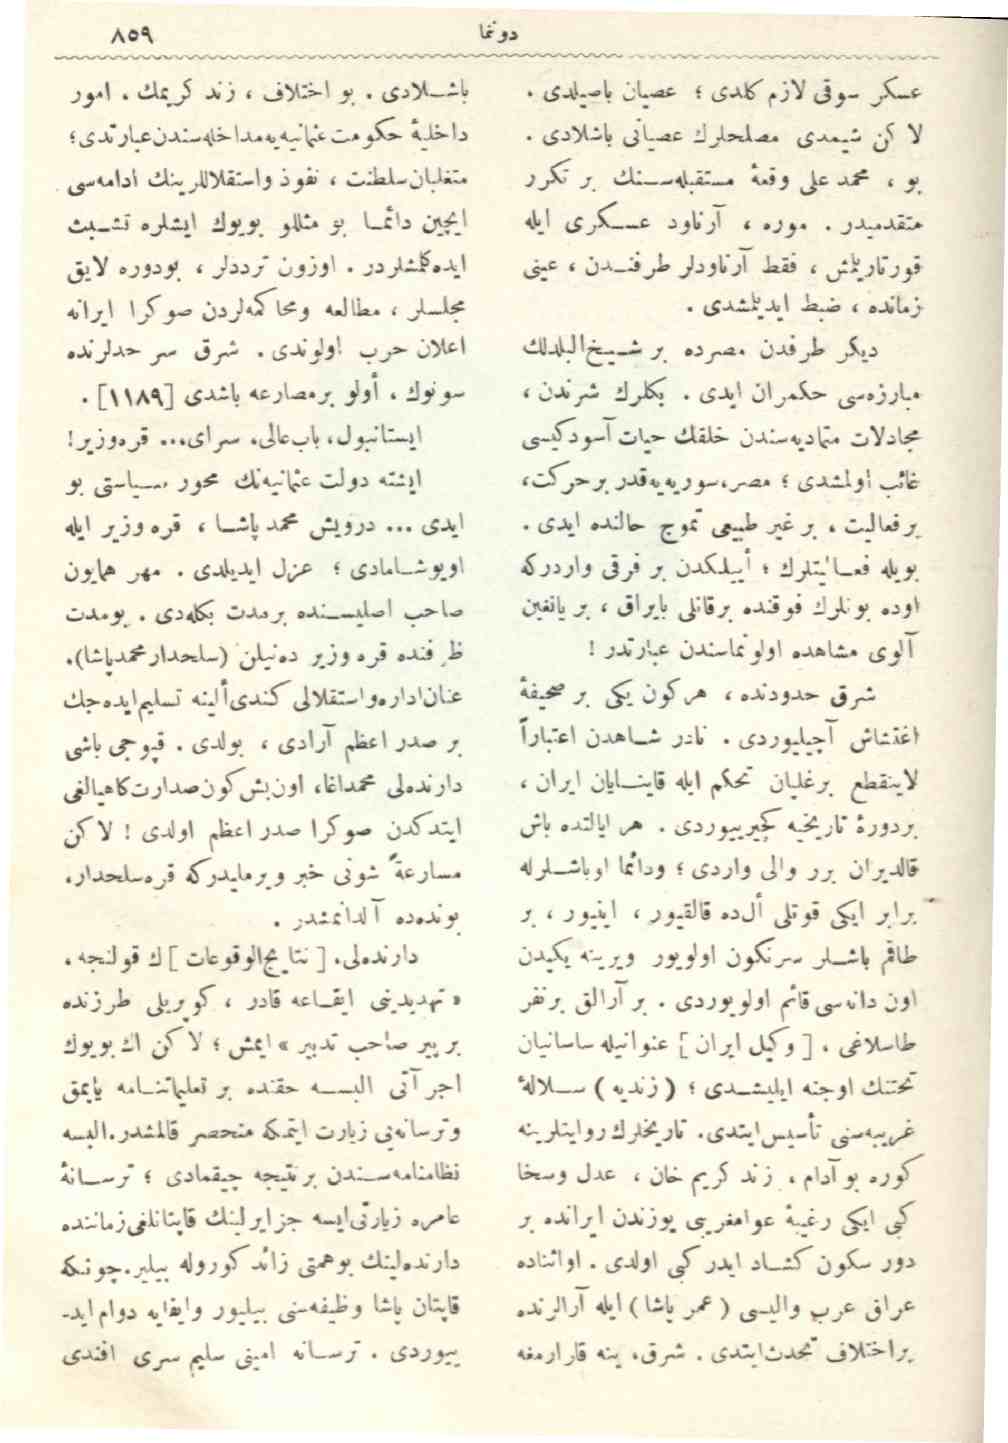 دوننما
٨٥٩
عسكر سوقی لازم كلدی ؛ عصیان باصیلدی .
لا كن شیمدی مصلحلرك عصیانی باشلادی .
بو ، محمد علی وقعۀ مستقبله‌سـنك بر تكرر
متقدمیدر . موره ، آرناود عسـكری ایله
قورتاریلمش ، فقط آرناودلر طرفنـدن ، عینی
زمانده ، ضبط ایدیلمشدی .
دیكر طرفدن مصرده بر شـیخ‌البلدلك
مبارزه‌سی حكمران ایدی . بكلرك شرندن ،
مجادلات متمادیه‌سندن خلقك حیات آسودكیسی
غائب اولمشدی ؛ مصر، سوریه‌یه‌قدر برحركت،
برفعالیت ، بر غیر طبیعی تموج حالنده ایدی .
بویله فعـالیتلرك ؛ أییلكدن بر فرقی واردركه
اوده بونلرك فوقنده برقانلی بایراق ، بر یانغین
آلوی مشاهده اولونماسندن عبارتدر !
شرق حدودنده ، هركون یكی بر صحیفۀ
اغتشاش آچیلیوردی . نادر شـاهدن اعتباراً
لاینقطع برغلیان تحكم ایله قاینـایان ایران ،
بردورۀ تاریخیه كچیرییوردی . هر ایالتده باش
قالدیران برر والی واردی ؛ ودائما اوباشـلرله
برابر ایكی قوتلی أل‌ده قالقیور ، اینیور ، بر
طاقم باشـلر سرنكون اولویور ویرینه یكیدن
اون دانه‌سی قائم اولویوردی . بر آرالق برنفر
طاسلاغی ، [ وكیل ایران ] عنوانیله ساسانیان
تختنك اوجنه ایلیشـدی ؛ ( زندیه ) سـلالۀ
غریبه‌سنی تأسیس‌ایتدی. تاریخلرك روایتلرینه
كوره بو آدام ، زند كریم خان ، عدل وسخا
كبی ایكی رغیبۀ عوامفریبی یوزندن ایرانده بر
دور سكون كشـاد ایدر كبی اولدی . اواثناده
عراق عرب والیسی ( عمر پاشا ) ایله آرالرنده
براختلاف تحدث‌ایتدی . شرق، ینه قارارمغه
باشـلادی . بو اختلاف ، زند كریمك ، امور
داخلیۀ حكومت عثمانیه‌یه‌مداخله‌سندن‌عبارتدی؛
متغلبان‌سلطنت ، نفوذ واستقلاللرینك ادامه‌سی
ایچین دائمـا بو مثللو بویوك ایشلره تشـبث
ایده‌كلمشلردر . اوزون ترددلر ، بودوره لایق
مجلسلر ، مطالعه ومحاكمه‌لردن صوكرا ایرانه
اعلان حرب اولوندی . شرق سر حدلرنده
سونوك ، أولو برمصارعه باشدی [١١٨٩] .
ایستانبول، باب‌عالی، سرای... قره‌وزیر!
ایشته دولت عثمانیه‌نك محور سـیاستی بو
ایدی ... درویش محمد پاشـا ، قره وزیر ایله
اویوشـامادی ؛ عزل ایدیلدی . مهر همایون
صاحب اصلیسـنده برمدت بكله‌دی . بومدت
ظرفنده قره وزیر ده‌نیلن (سلحدارمحمدپاشا).
عنان‌اداره‌واستقلالی كندی‌ألینه تسلیم‌ایده‌جك
بر صدر اعظم آرادی ، بولدی . قپوجی باشی
دارنده‌لی محمداغا، اون‌بش‌كون‌صدارت‌كاهیالغی
ایتدكدن صوكرا صدر اعظم اولدی ! لا كن
مسارعةً شونی خبر ویرمایدركه قره‌سلحدار،
بونده‌ده آلدانمشدر .
دارنده‌لی، [ نتایج‌الوقوعات ] ك قولنجه ،
« تهدیدینی ایقـاعه قادر ، كوپریلی طرزنده
بر پیر صاحب تدبیر » ایمش ؛ لا كن اك بویوك
اجراآتی البسـه حقنده بر تعلیماتنـامه یاپمق
وترسانه‌یی زیارت ایتمكه منحصر قالمشدر.البسه
نظامنامه‌سـندن برنتیجه چیقمادی ؛ ترسـانۀ
عامره زیارتی‌ایسه جزایرلینك قاپتانلغی‌زماننده
دارنده‌لینك بوهمتی زائد كوروله بیلیر.چونكه
قاپتان پاشا وظیفه‌سنی بیلیور وایفایه دوام‌ایدـ
ییوردی . ترسـانه امینی سلیم سری افندی